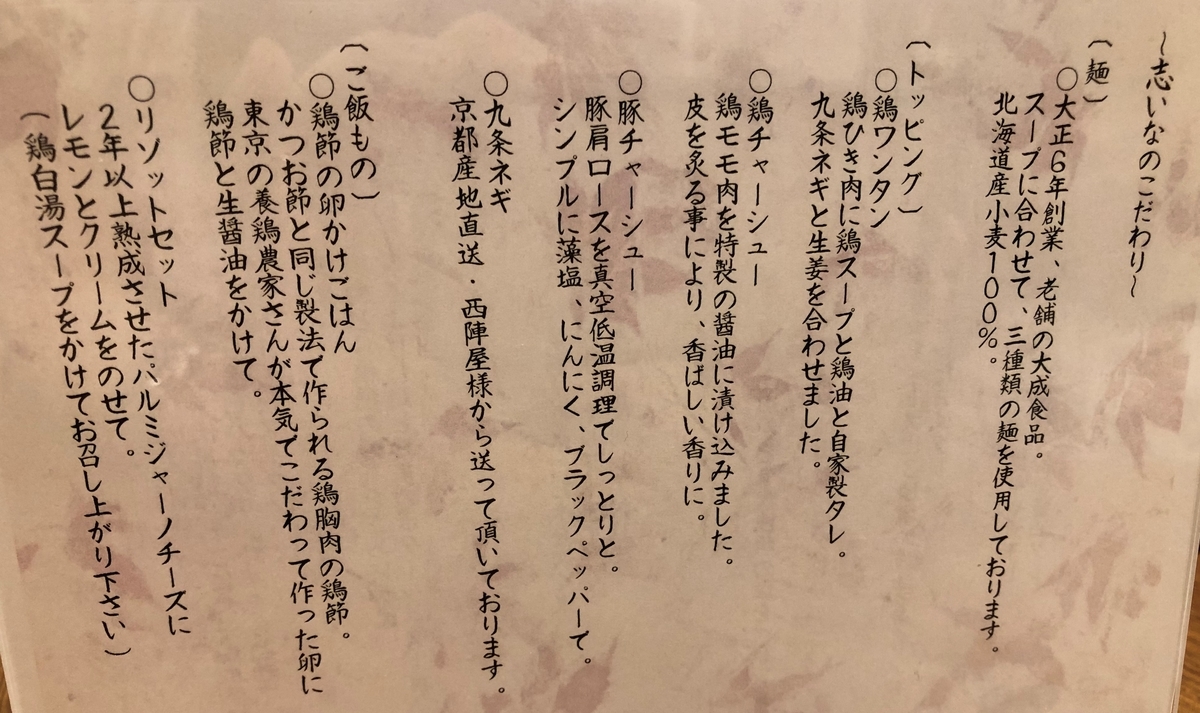 ～志いなのこだわり～
（麺）
○大正6年創業、老舗の大成食品。
スープに合わせて、三種類の麺を使用しております。
北海道産小麦100％。
（トッピング）
○鶏ワンタン
鶏ひき肉に鶏スープと鶏油と自家製タレ。
九条ネギと生姜を合わせました。
○鶏チャーシュー
鶏モモ肉を特製の醤油に漬け込みました。
皮を炙る事により、香ばしい香りに。
○豚チャーシュー
豚肩ロースを真空低温調理でしっとりと。
シンプルに藻塩、にんにく、ブラックペッパーで。
○九条ネギ
京都産地直送・西陣屋様から送って頂いております。
（ご飯もの）
○鶏節の卵かけごはん
かつお節と同じ製法で作られる鶏胸肉の鶏節。
東京の養鶏農家さんが本気でこだわって作った卵に
鶏節と生醤油をかけて。
○リゾットセット
2年以上熟成させたパルミジャーノチーズに
レモンとクリームをのせて。
（鶏白湯スープをかけてお召し上がり下さい）